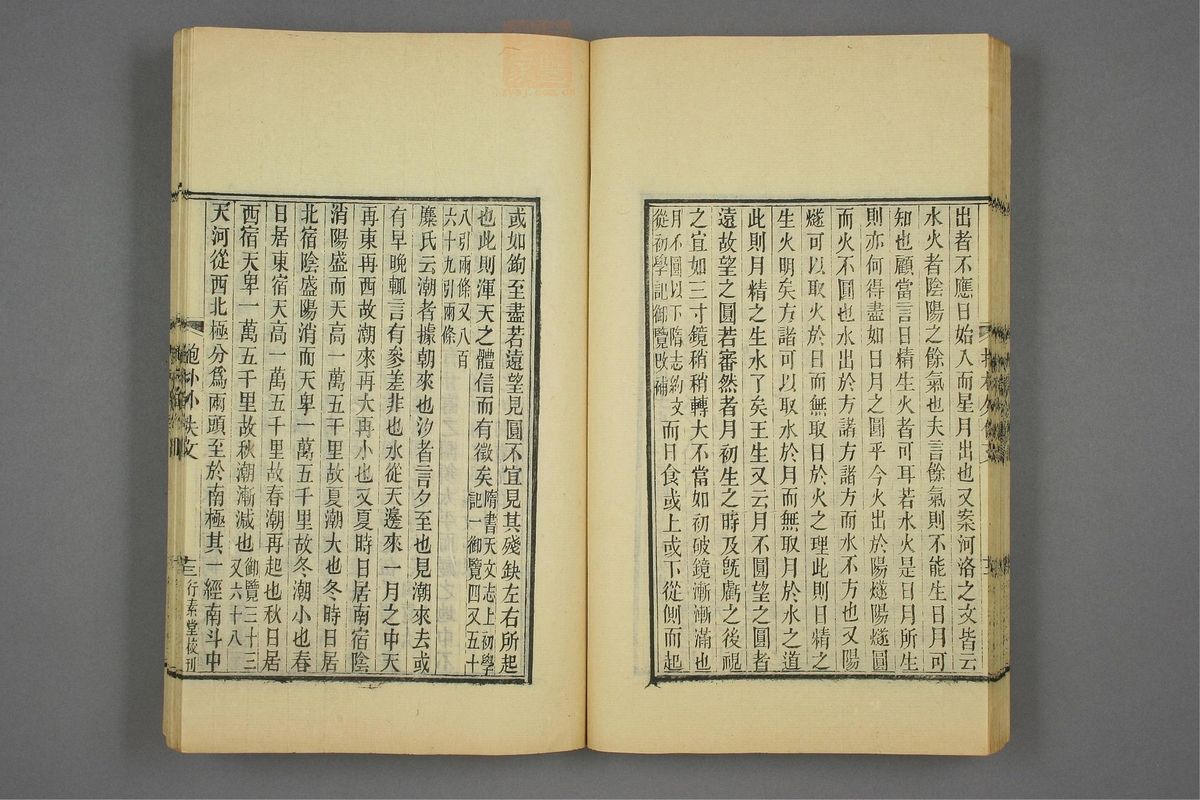 出者不應日始入而星月出也又案河洛之文皆云
水火者陰陽之餘氣也夫言餘氣則不能生日月可
知也顧當言日精生火者可耳若水火是日月所生
則亦何得盡如日月之圓乎今火出於陽燧陽燧圓
而火不圓也水出於方諸方諸方而水不方也又陽
燧可以取火於日而無取日於火之理此則日精之
生火明矣方諸可以取水於月而無取月於水之道
此則月精之生水了矣王生又云月不圓望之圓者
遠故望之圓若審然者月初生之時及既虧之後視
之宜如三寸鏡稍稍轉大不當如初破鏡漸漸滿也
月不圓以下隋志約文
從初學記御覽改補
而日食或上或下從側而起
或如鉤至盡若遠望見圓不宜見其殘缺左右所起
也此則渾天之體信而有徵矣
隋書天文志上初學
記一御覽四又五十
八引兩條又八百
六十九引兩條
麋氏云潮者據朝來也汐者言夕至也見潮來去或
有早晚輒言有參差非也水從天邊來一月之中天
再東再西故潮來再大再小也又夏時日居南宿陰
消陽盛而天高一萬五千里故夏潮大也冬時日居
北宿陰盛陽消而天卑一萬五千里故冬潮小也春
日居東宿天高一萬五千里故春潮再起也秋日居
西宿天卑一萬五千里故秋潮漸減也
御覽二十三
又六十八
天河從西北極分爲兩頭至於南極其一經南斗中
抱朴外佚文
行素堂校刊